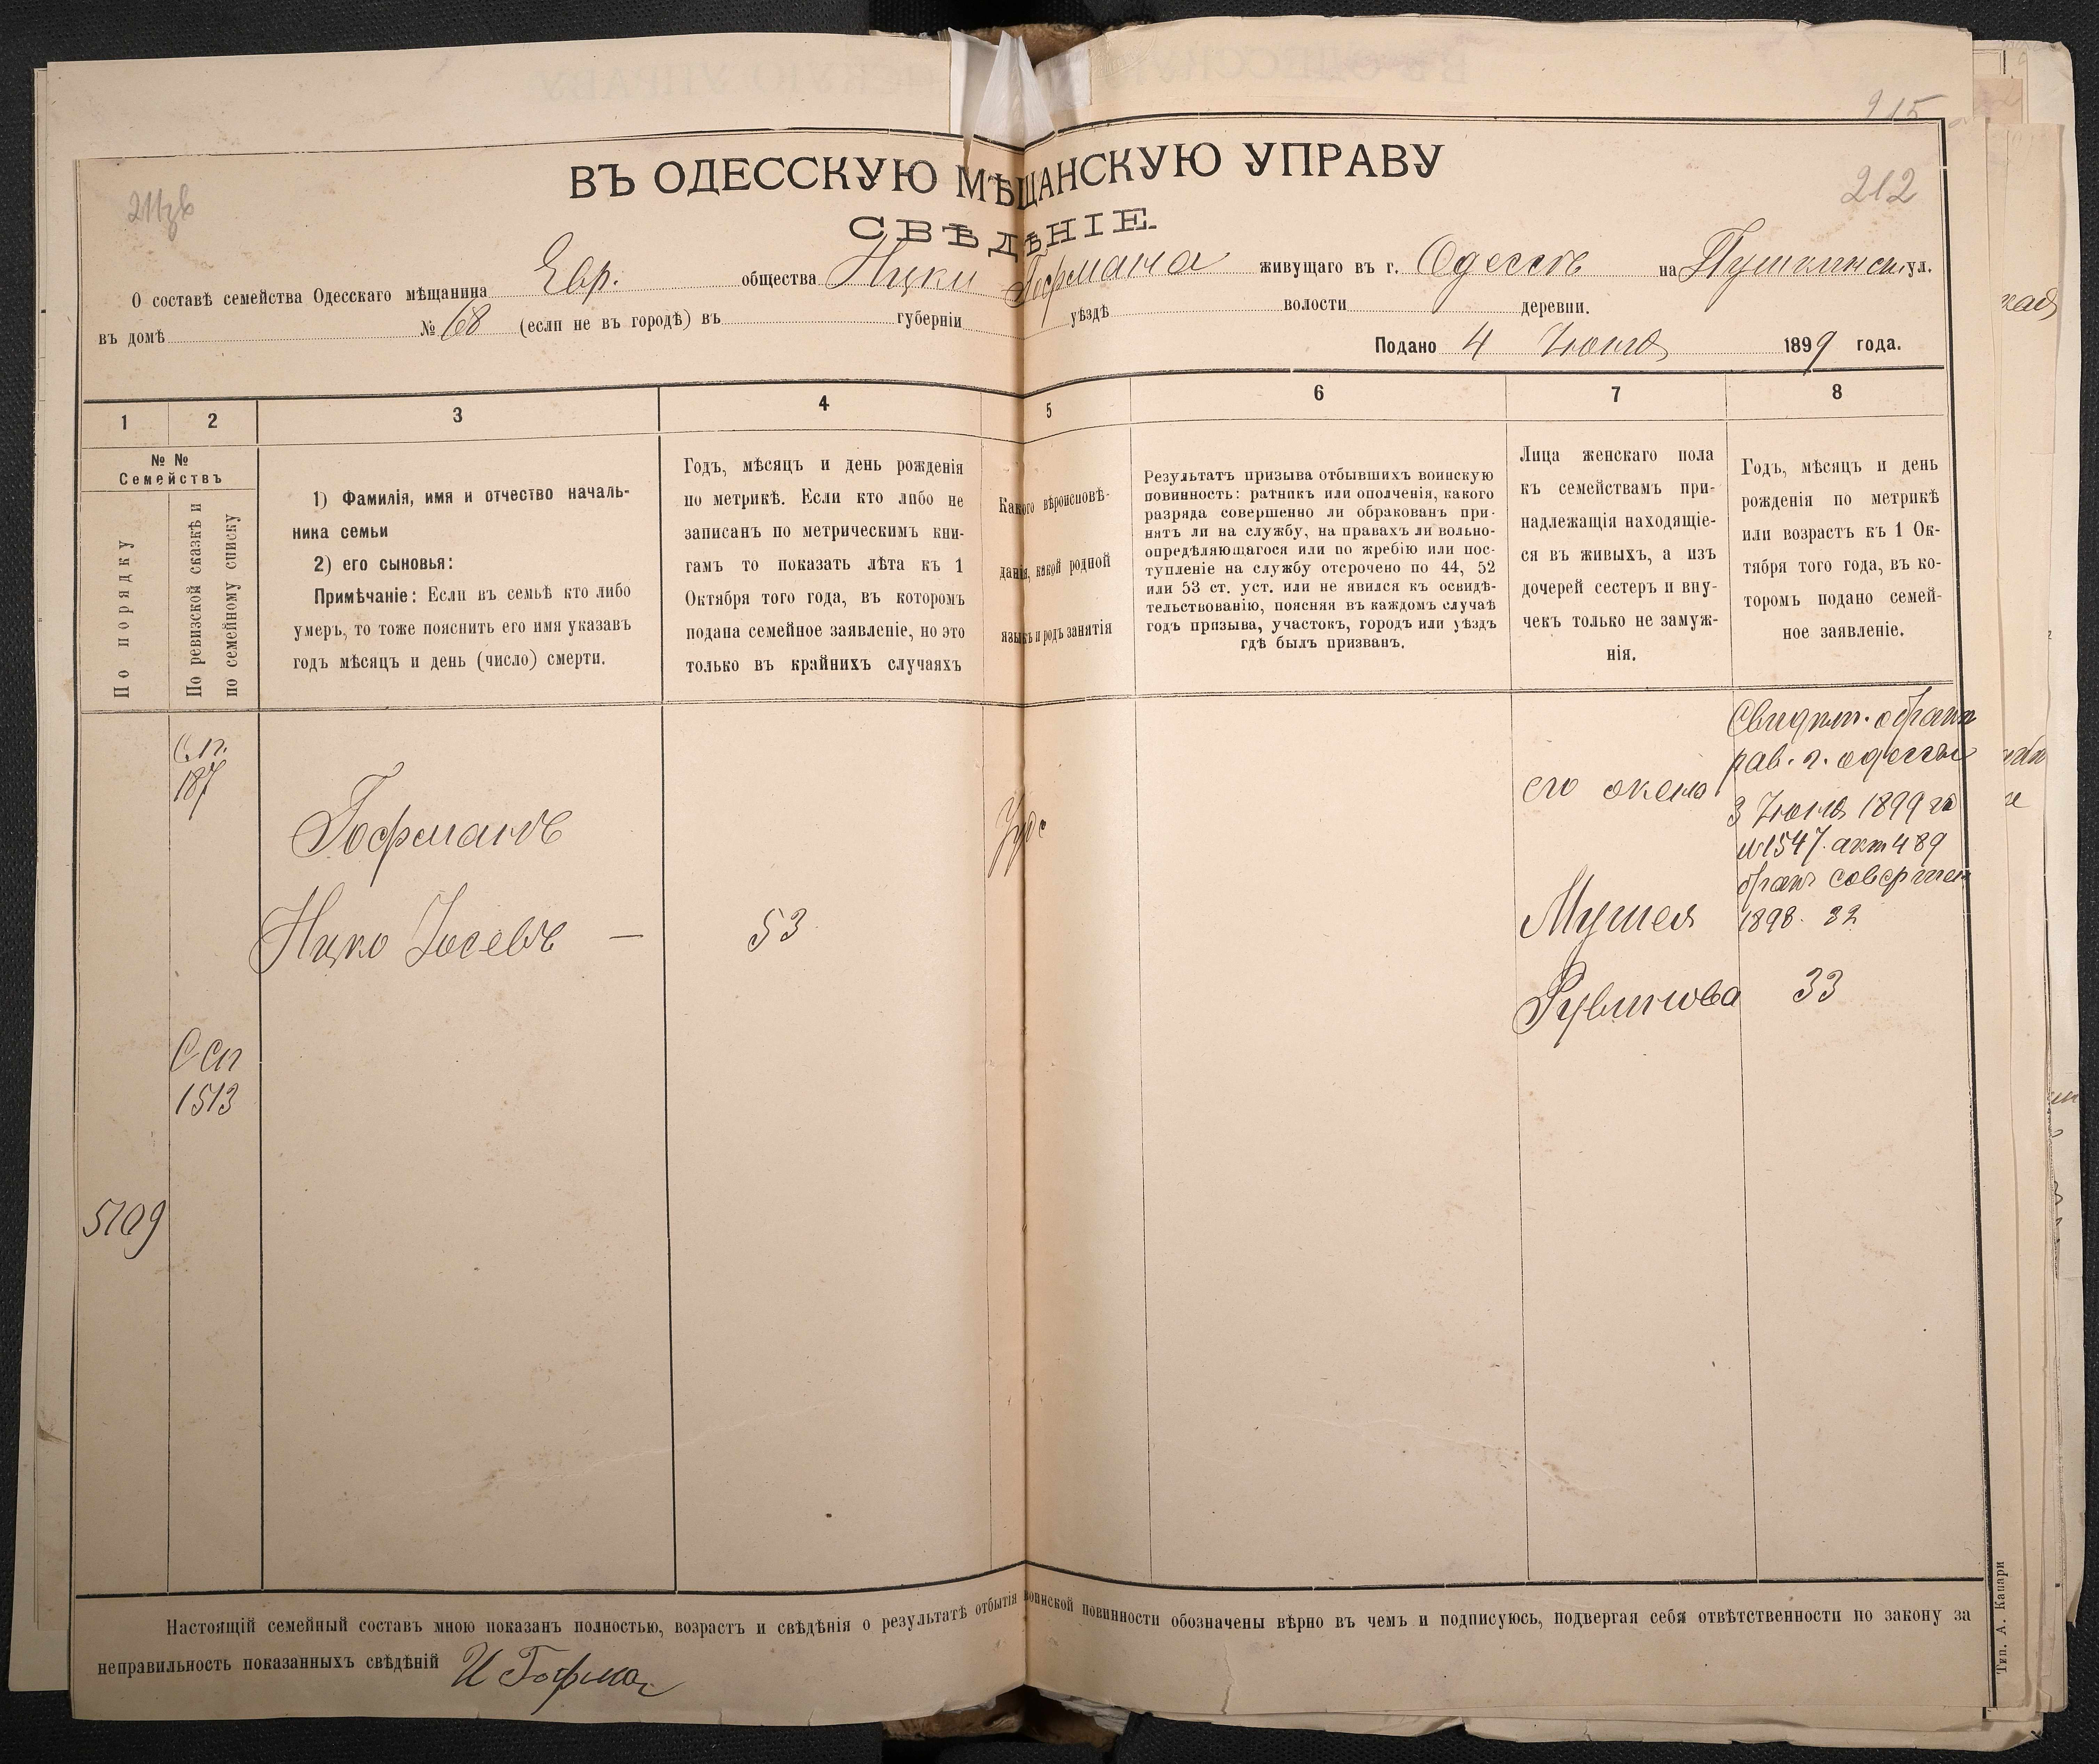 915
212
ВЪ ОДЕССКУЮ МѢЩАНСКУЮ УПРАВУ
СВѢДѢНІЕ.
О составѣ семейства Одесскаго мѣщанина Евр. общества Ицки Гофмана живущаго въ г. Одессѣ на Пушкинск. ул.
въ домѣ № 68 (если не въ городѣ) въ губерніи уѣздѣ волости деревни.
Подано 4 Іюня 1899 года.
1 2 3 4 5 6 7 8
№ №
Семействъ
По порядку
По ревизской сказкѣ и
по семейному списку
1) Фамилія, имя и отчество началь-
ника семьи
2) его сыновья:
Примѣчаніе: Если въ семьѣ кто либо
умеръ, то тоже пояснить его имя указавъ
годъ мѣсяцъ и день (число) смерти.
Годъ, мѣсяцъ и день рожденія
по метрикѣ. Если кто либо не
записанъ по метрическимъ кни-
гамъ то показать лѣта къ 1
Октября того года, въ которомъ
подана семейное заявленіе, но это
только въ крайнихъ случаяхъ
Какого вѣроисповѣ-
данія, какой родной
языкъ и родъ занятія
Результатъ призыва отбывшихъ воинскую
повинность: ратникъ или ополченія, какого
разряда совершенно ли обракованъ при-
нятъ ли на службу, на правахъ ли вольно-
опредѣляющагося или по жребію или пос-
тупленіе на службу отсрочено по 44, 52
или 53 ст. уст. или не явился къ освидѣ-
тельствованію, поясняя въ каждомъ случаѣ
годъ призыва, участокъ, городъ или уѣздъ
гдѣ былъ призванъ.
Лица женскаго пола
къ семействамъ при-
надлежащія находящіе-
ся въ живыхъ, а изъ
дочерей сестеръ и вну-
чекъ только не замуж-
нія.
Годъ, мѣсяцъ и день
рожденія по метрикѣ
или возрастъ къ 1 Ок-
тября того года, въ ко-
торомъ подано семей-
ное заявленіе.
С.п.
187
Гофманъ
Ицко Іосевъ — 53
Іуде
его жена
Мушея
Рувинова 33
Свидѣт. о брак
рав. г. одессы
3 Іюня 1899 го
№1547. акт 489
бракъ совершен
1898. 32
ССп
1513
5109
Настоящій семейный составъ мною показанъ полностью, возрастъ и свѣдѣнія о результатѣ отбытія воинской повинности обозначены вѣрно въ чемъ и подписуюсь, подвергая себя отвѣтственности по закону за
неправильность показанныхъ свѣдѣній И Гофман
Тип. А. Капари